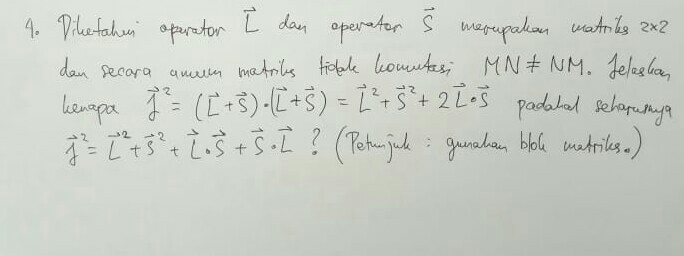 4. Diketahui operator L⃗ dan operator S⃗ merupakan matriks 2×2
dan secara umum matriks tidak komutasi MN ≠ NM. Jelaskan
kenapa J⃗² = (L⃗+S⃗)·(L⃗+S⃗) = L⃗²+S⃗²+2L⃗·S⃗ padahal seharusnya
J⃗² = L⃗²+S⃗²+L⃗·S⃗+S⃗·L⃗ ? (Petunjuk : gunakan blok matriks.)